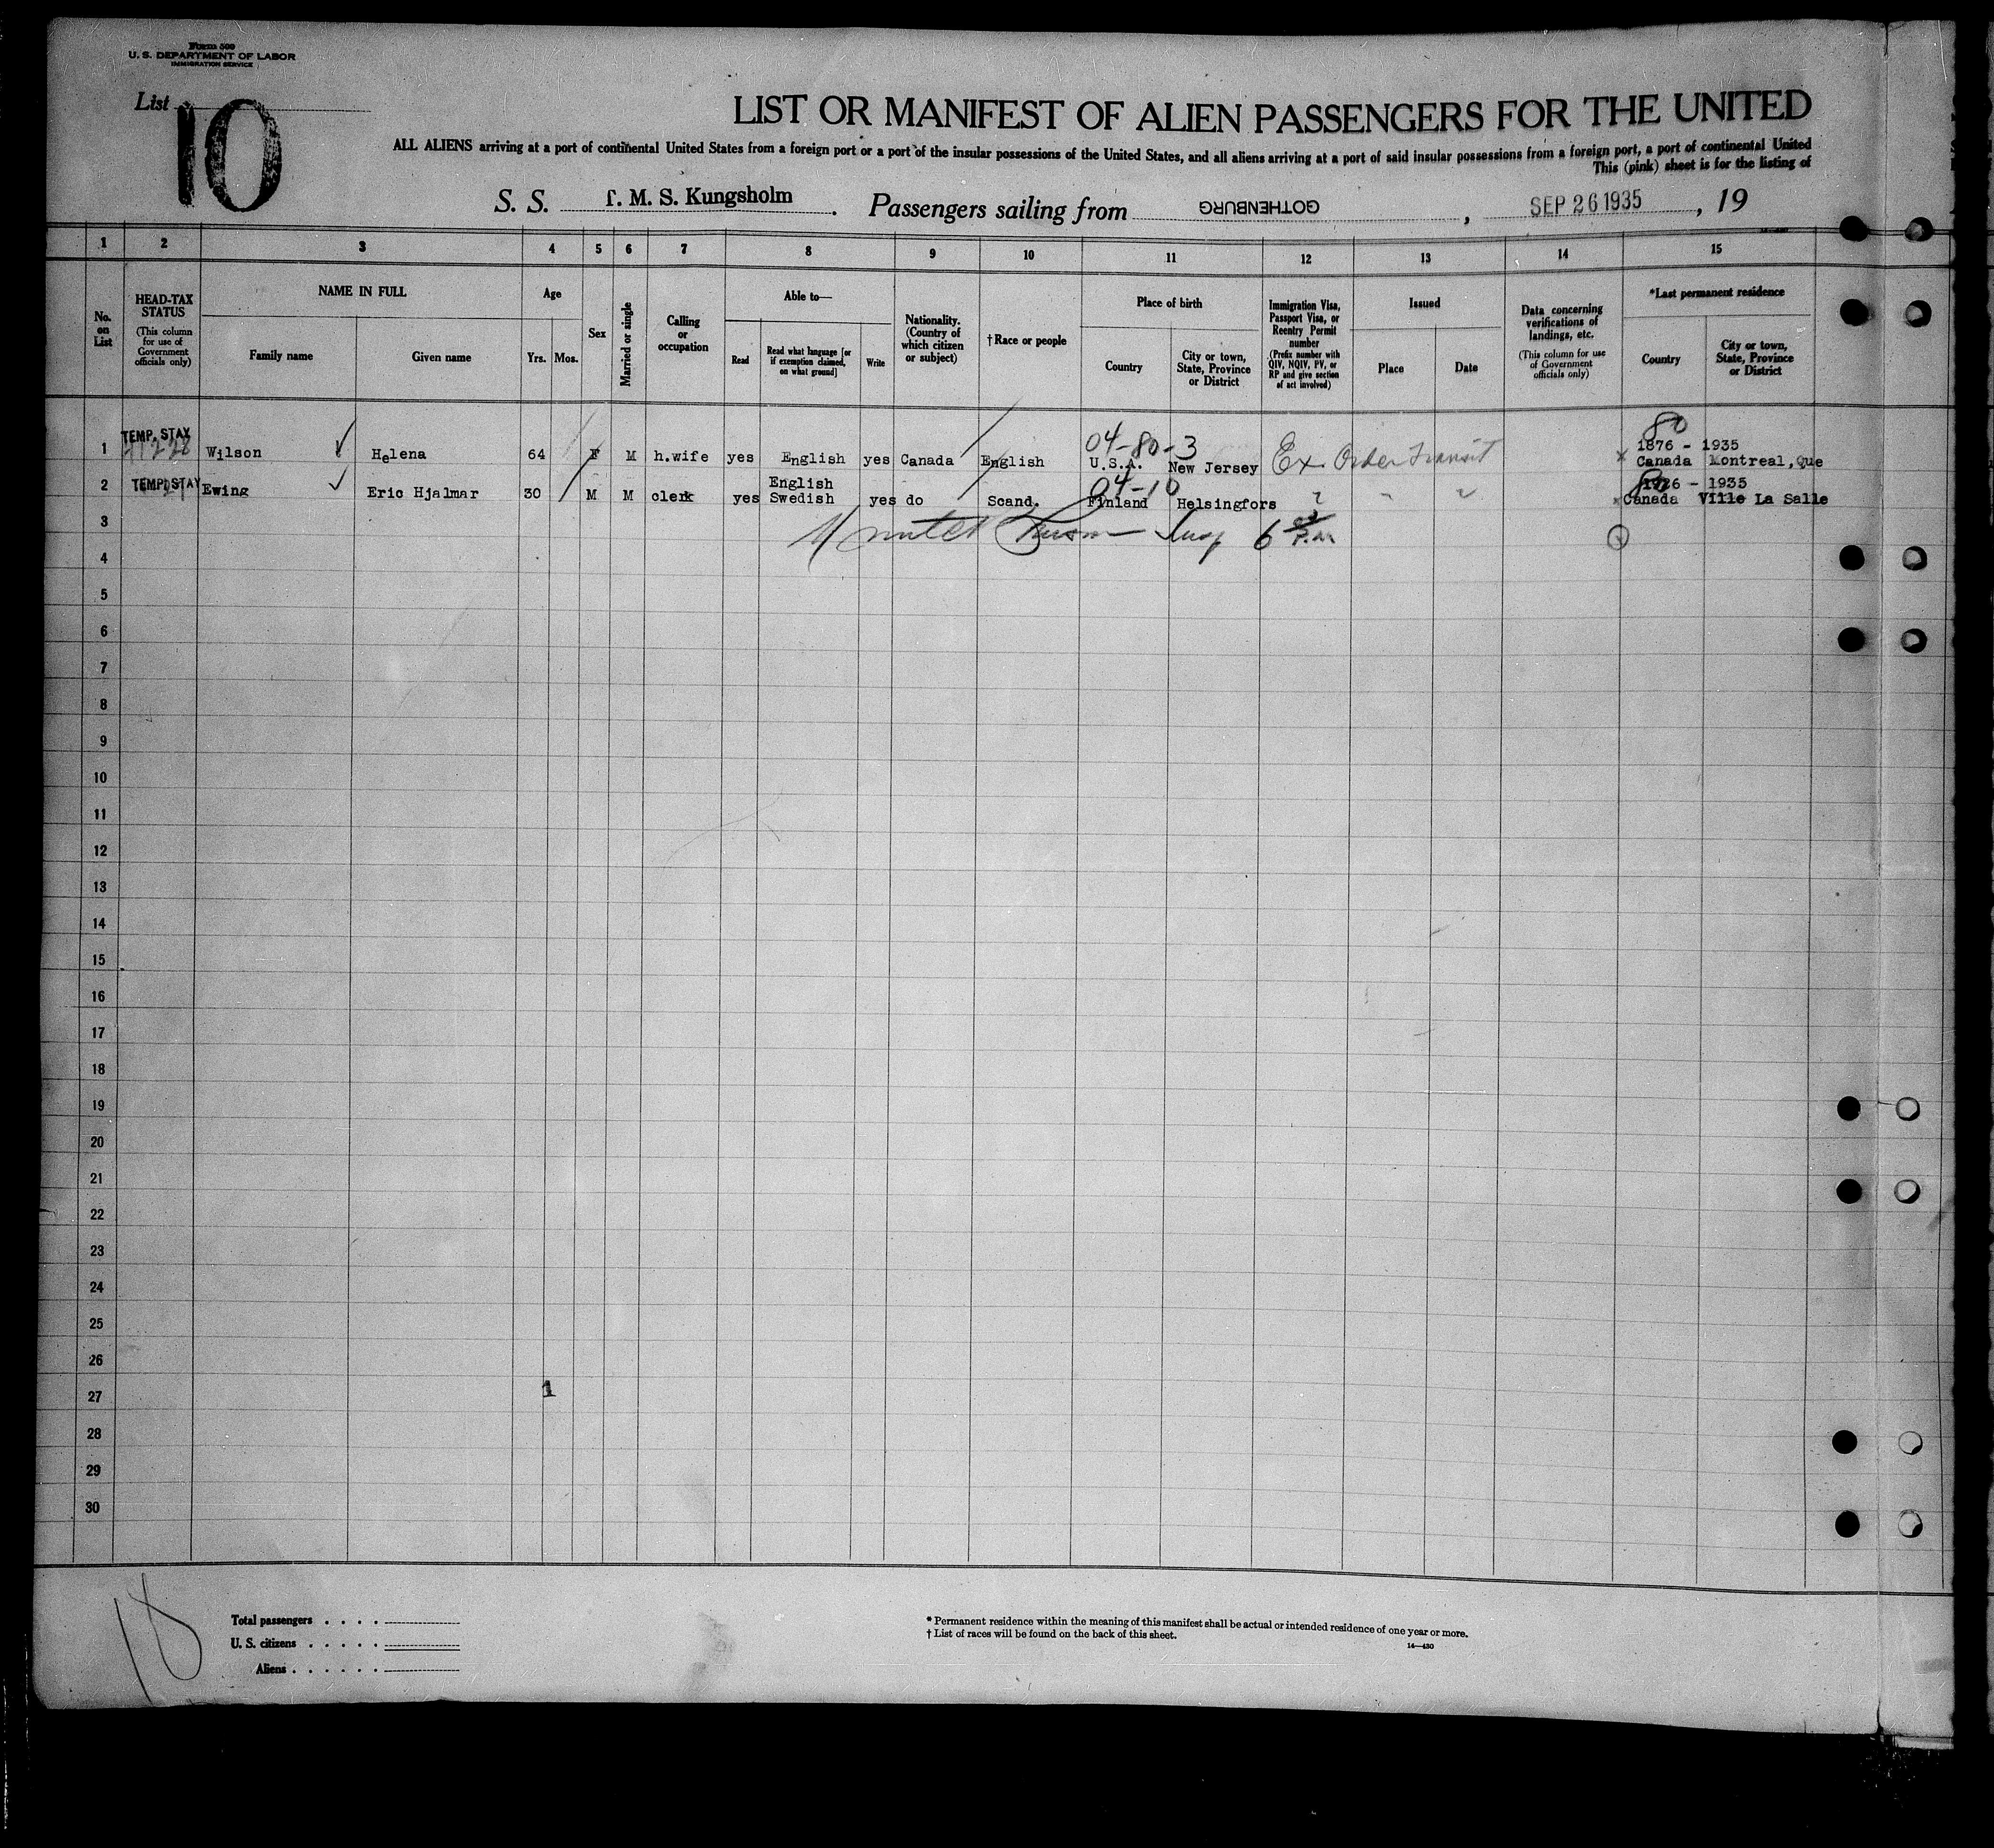 Form 500
U. S. DEPARTMENT OF LABOR
IMMIGRATION SERVICE
List 10
LIST OR MANIFEST OF ALIEN PASSENGERS FOR THE UNITED
ALL ALIENS arriving at a port of continental United States from a foreign port or a port of the insular possessions of the United States, and all aliens arriving at a port of said insular possessions from a foreign port, a port of continental United
This (pink) sheet is for the listing of
S. S. M. S. Kungsholm. Passengers sailing from GOTHENBURG, SEP 26 1935, 19
1 2 3 4 5 6 7 8 9 10 11 12 13 14 15
No. on List
HEAD-TAX STATUS
(This column for use of Government officials only)
NAME IN FULL
Family name
Given name
Age
Yrs. Mos.
Sex
Married or single
Calling or occupation
Able to—
Read
Read what language [or if exemption claimed, on what ground]
Write
Nationality. (Country of which citizen or subject)
†Race or people
Place of birth
Country
City or town, State, Province or District
Immigration Visa, Passport Visa, or Reentry Permit number
(Prefix number with QIV, NQIV, PV, or RP and give section of act involved)
Issued
Place
Date
Data concerning verifications of landings, etc.
(This column for use of Government officials only)
*Last permanent residence
Country
City or town, State, Province or District
TEMP. STAY
80
04-80-3
1876 - 1935
1 Wilson Helena 64 F M h.wife yes English yes Canada English U.S.A. New Jersey Ex. Order Transit Canada Montreal, Que
TEMP. STAY
English
04-10
1926 - 1935
2 Ewing Eric Hjalmar 30 M M clerk yes Swedish yes do Scand. Finland Helsingfors Canada Ville La Salle
3
4
5
6
7
8
9
10
11
12
13
14
15
16
17
18
19
20
21
22
23
24
25
26
27
1
28
29
30
Total passengers . . . .
U. S. citizens . . . . .
Aliens . . . . . .
* Permanent residence within the meaning of this manifest shall be actual or intended residence of one year or more.
† List of races will be found on the back of this sheet.
14—430